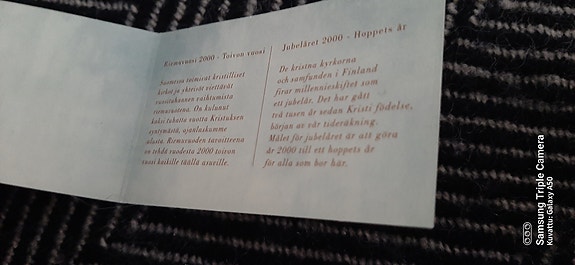 Riemuvuosi 2000 - Toivon vuosi
Suomessa toimivat kristilliset
kirkot ja yhteisöt viettävät
vuosituhannen vaihtumista
riemuvuotena. On kulunut
kaksi tuhatta vuotta Kristuksen
syntymästä, ajanlaskumme
alusta. Riemuvuoden tavoitteena
on tehdä vuodesta 2000 toivon
vuosi kaikille täällä asuville.
Jubelåret 2000 - Hoppets år
De kristna kyrkorna
och samfunden i Finland
firar millennieskiftet som
ett jubelår. Det har gått
två tusen år sedan Kristi födelse,
början av vår tideräkning.
Målet för jubelåret är att göra
år 2000 till ett hoppets år
för alla som bor här.
Samsung Triple Camera
Kuvattu: Galaxy A50